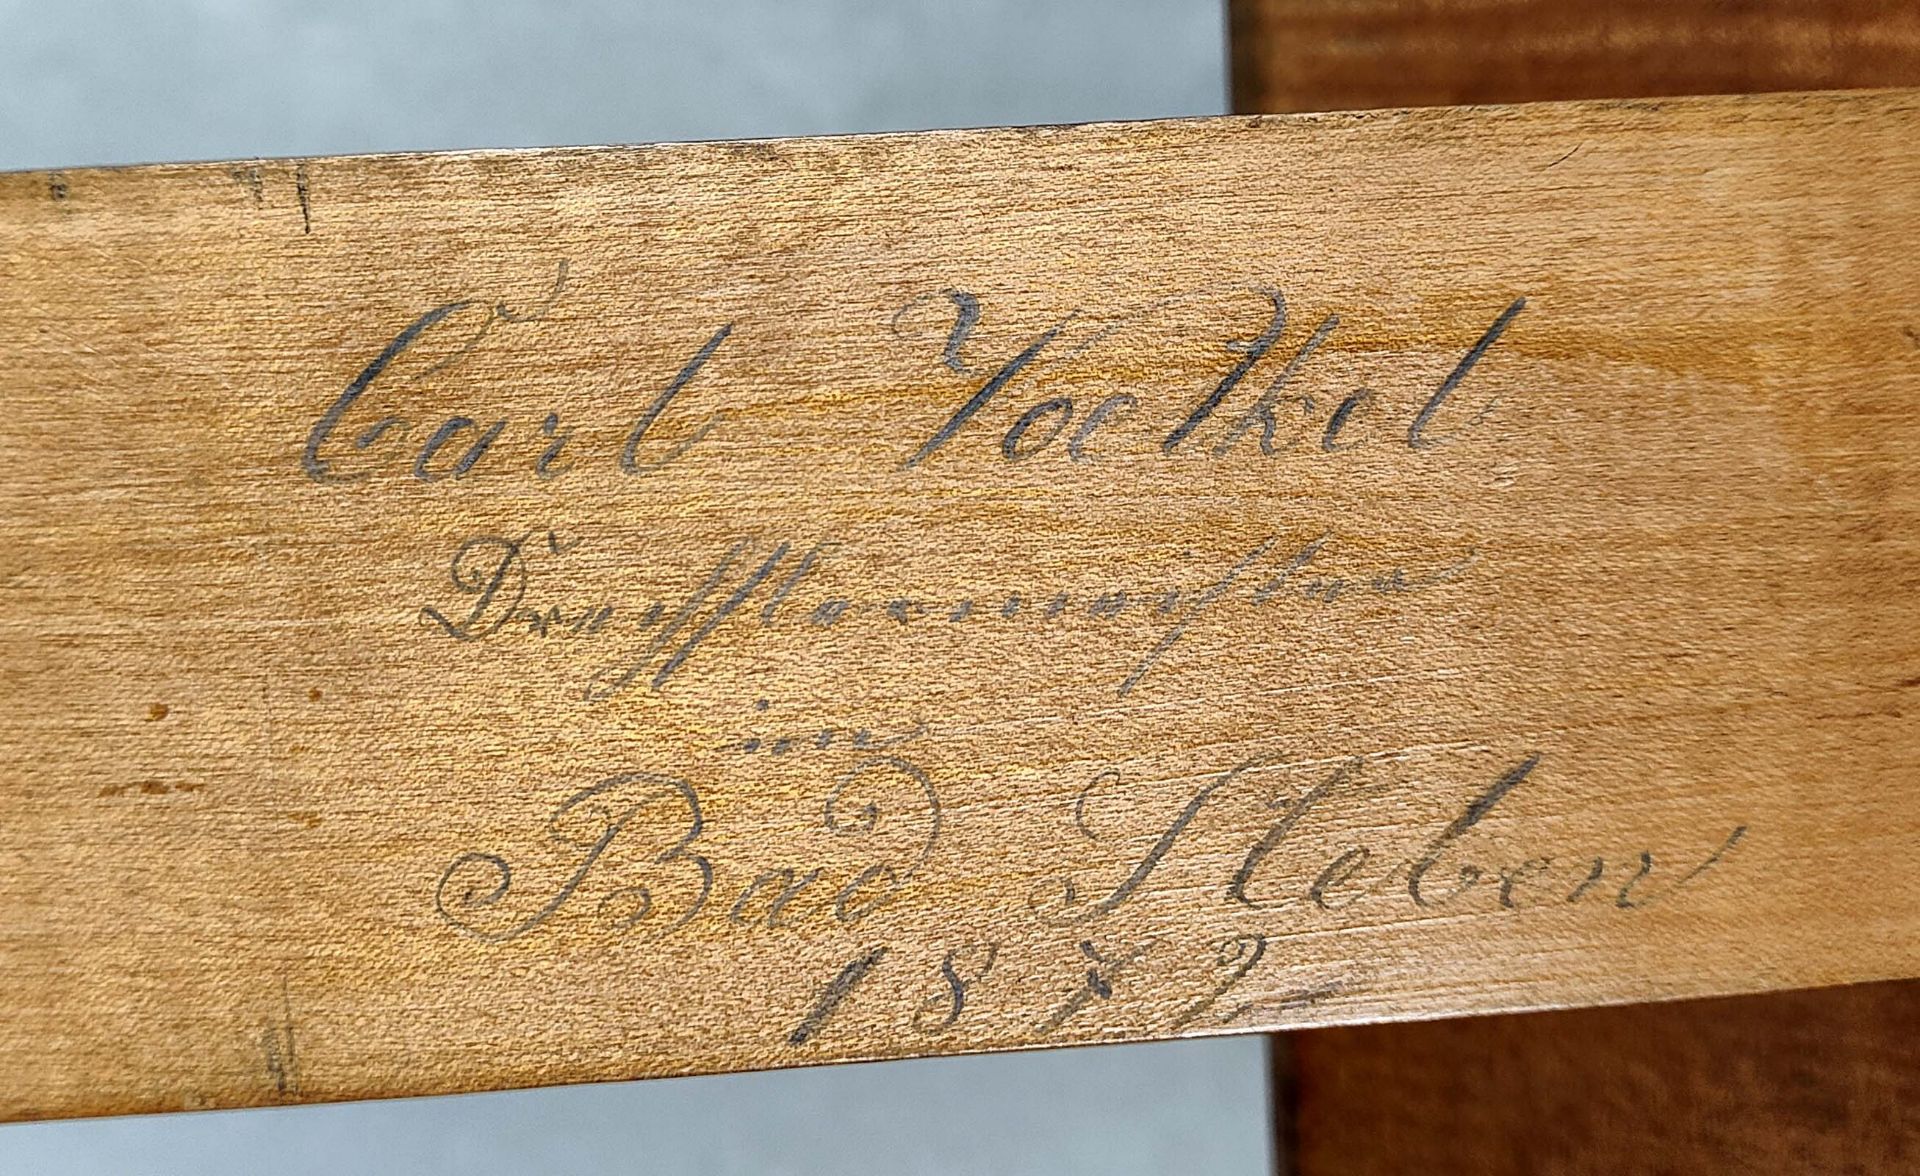 Carl Voelkel
Drechslermeister
in
Bad Steben
1872